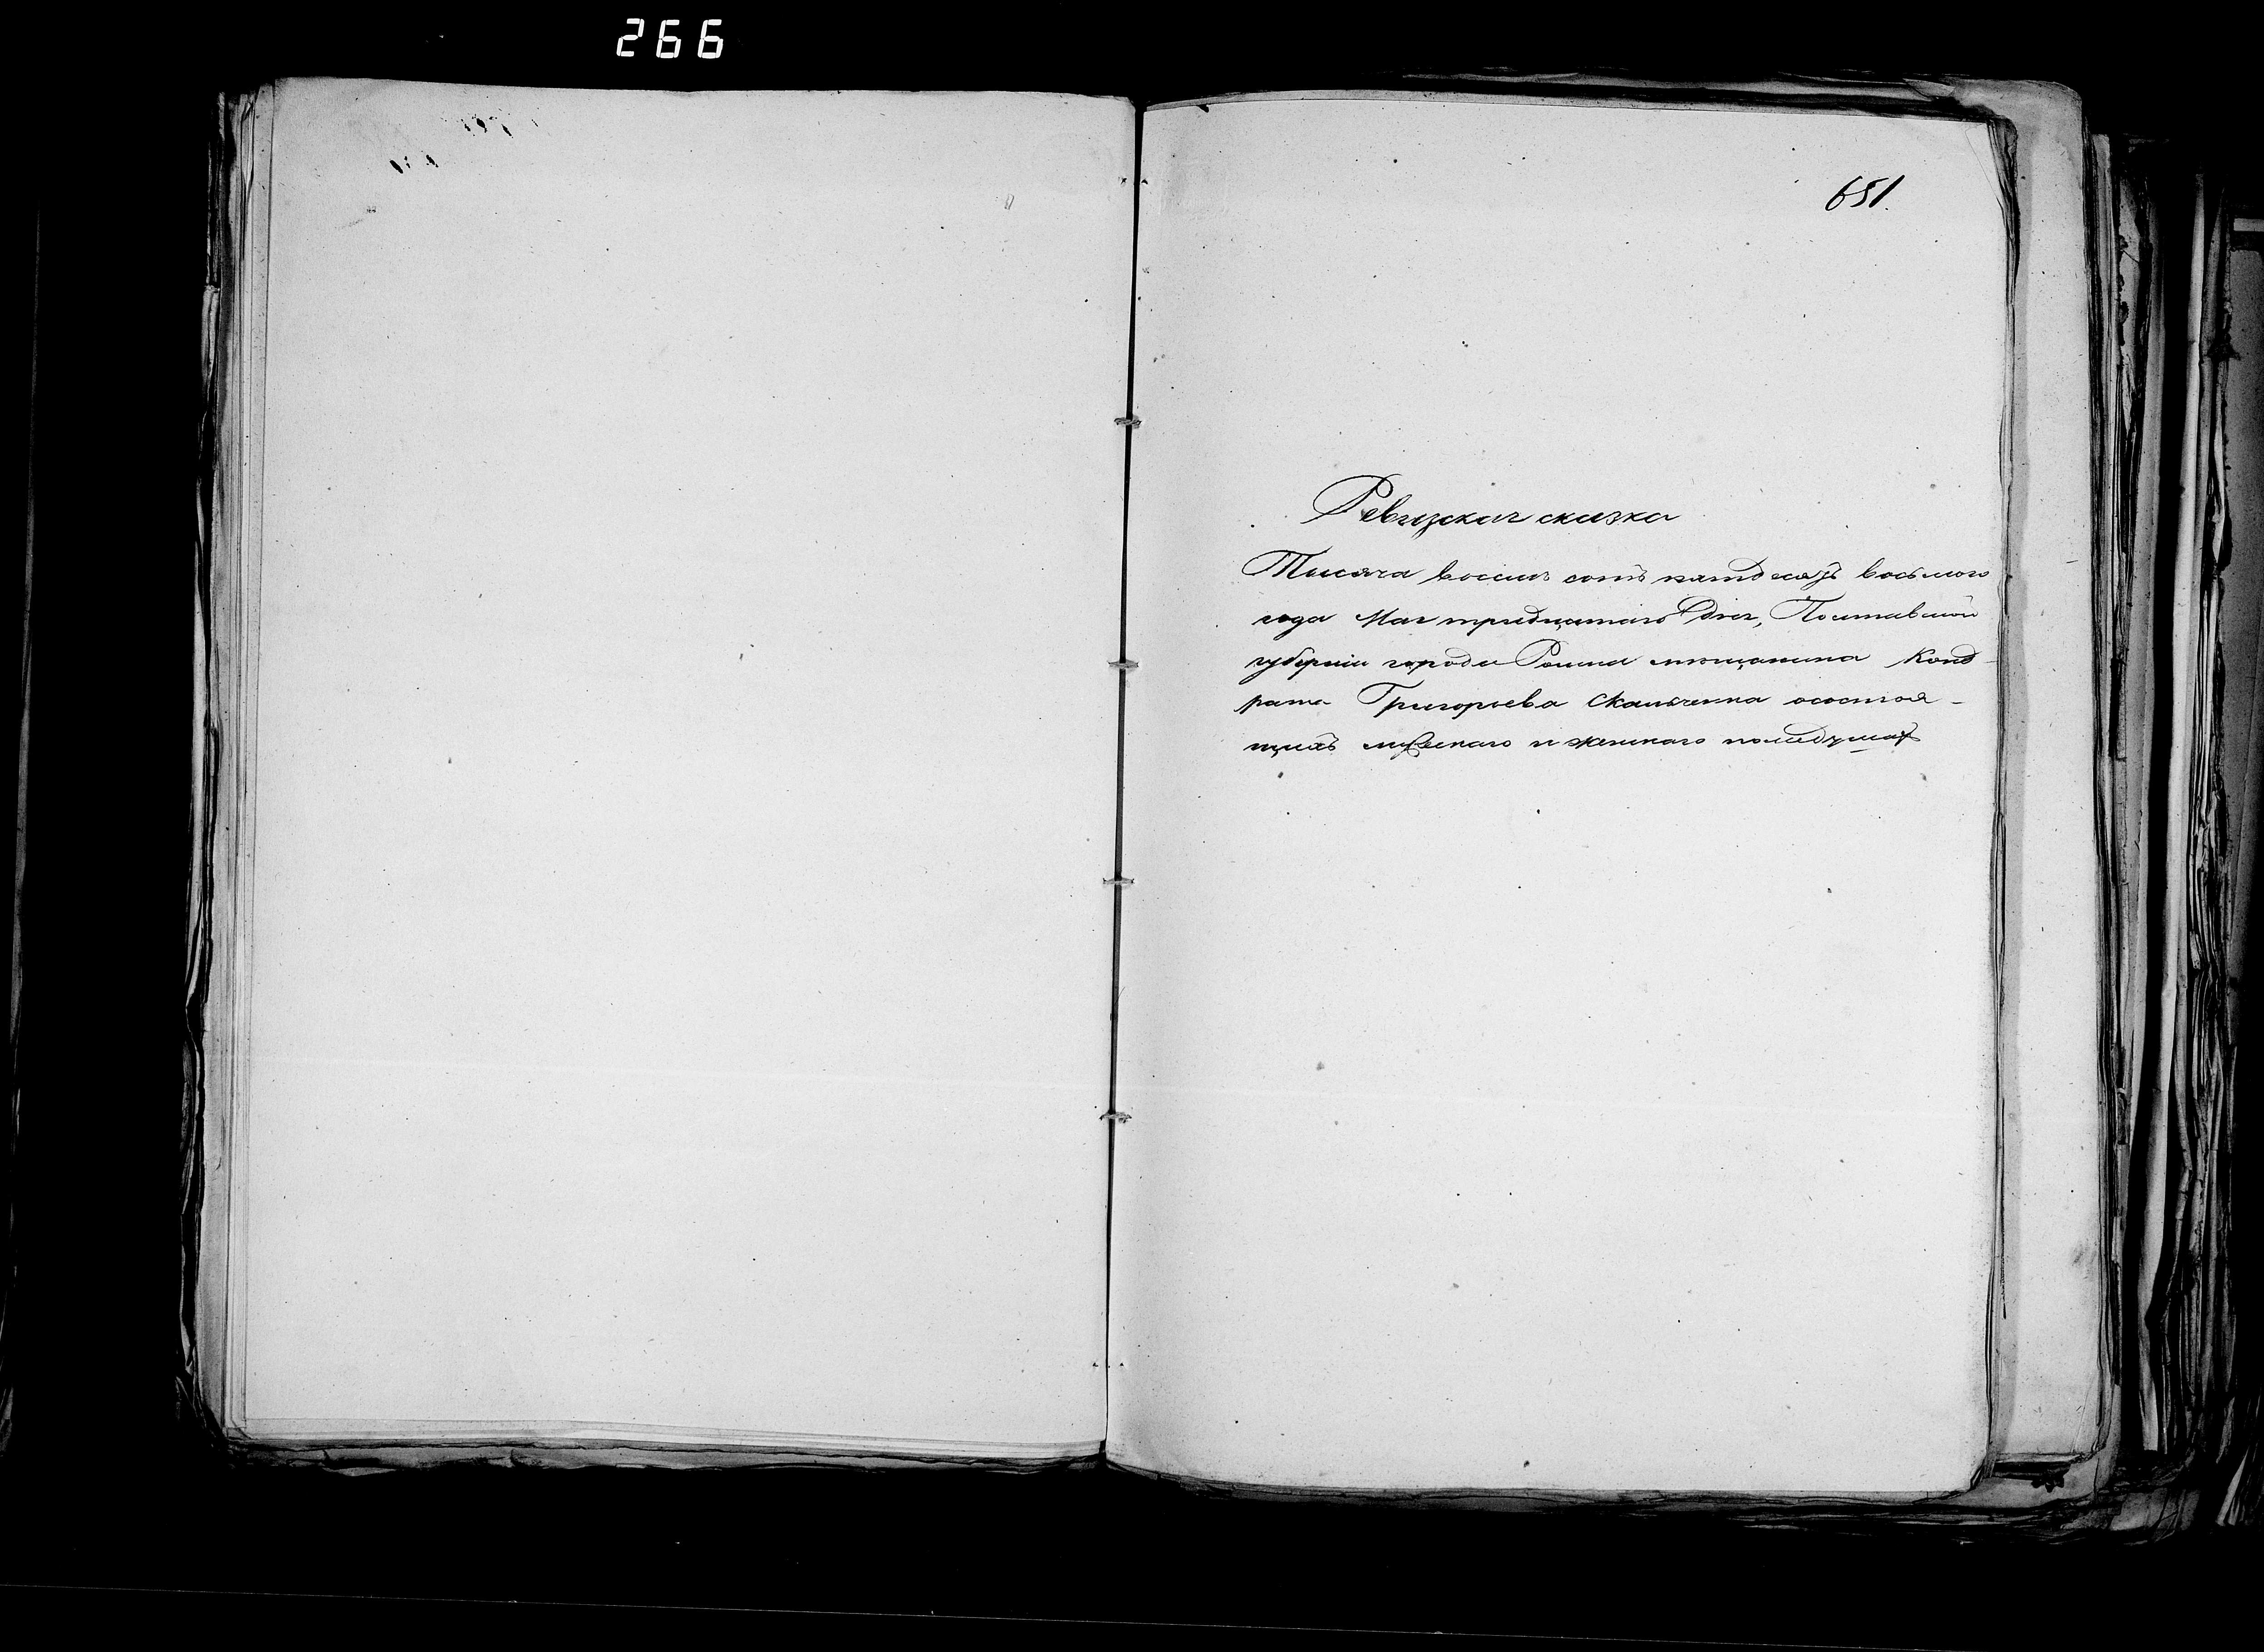 266
651.
Ревизская сказка
Тысяча восемь сотъ пятдесятъ восьмого
года Мая тридцатаго дня, Полтавской
губерніи города Ромна мещанина Конд-
рата Григорьева Скальченка осостоя-
щихъ мужескаго и женскаго полидушахъ